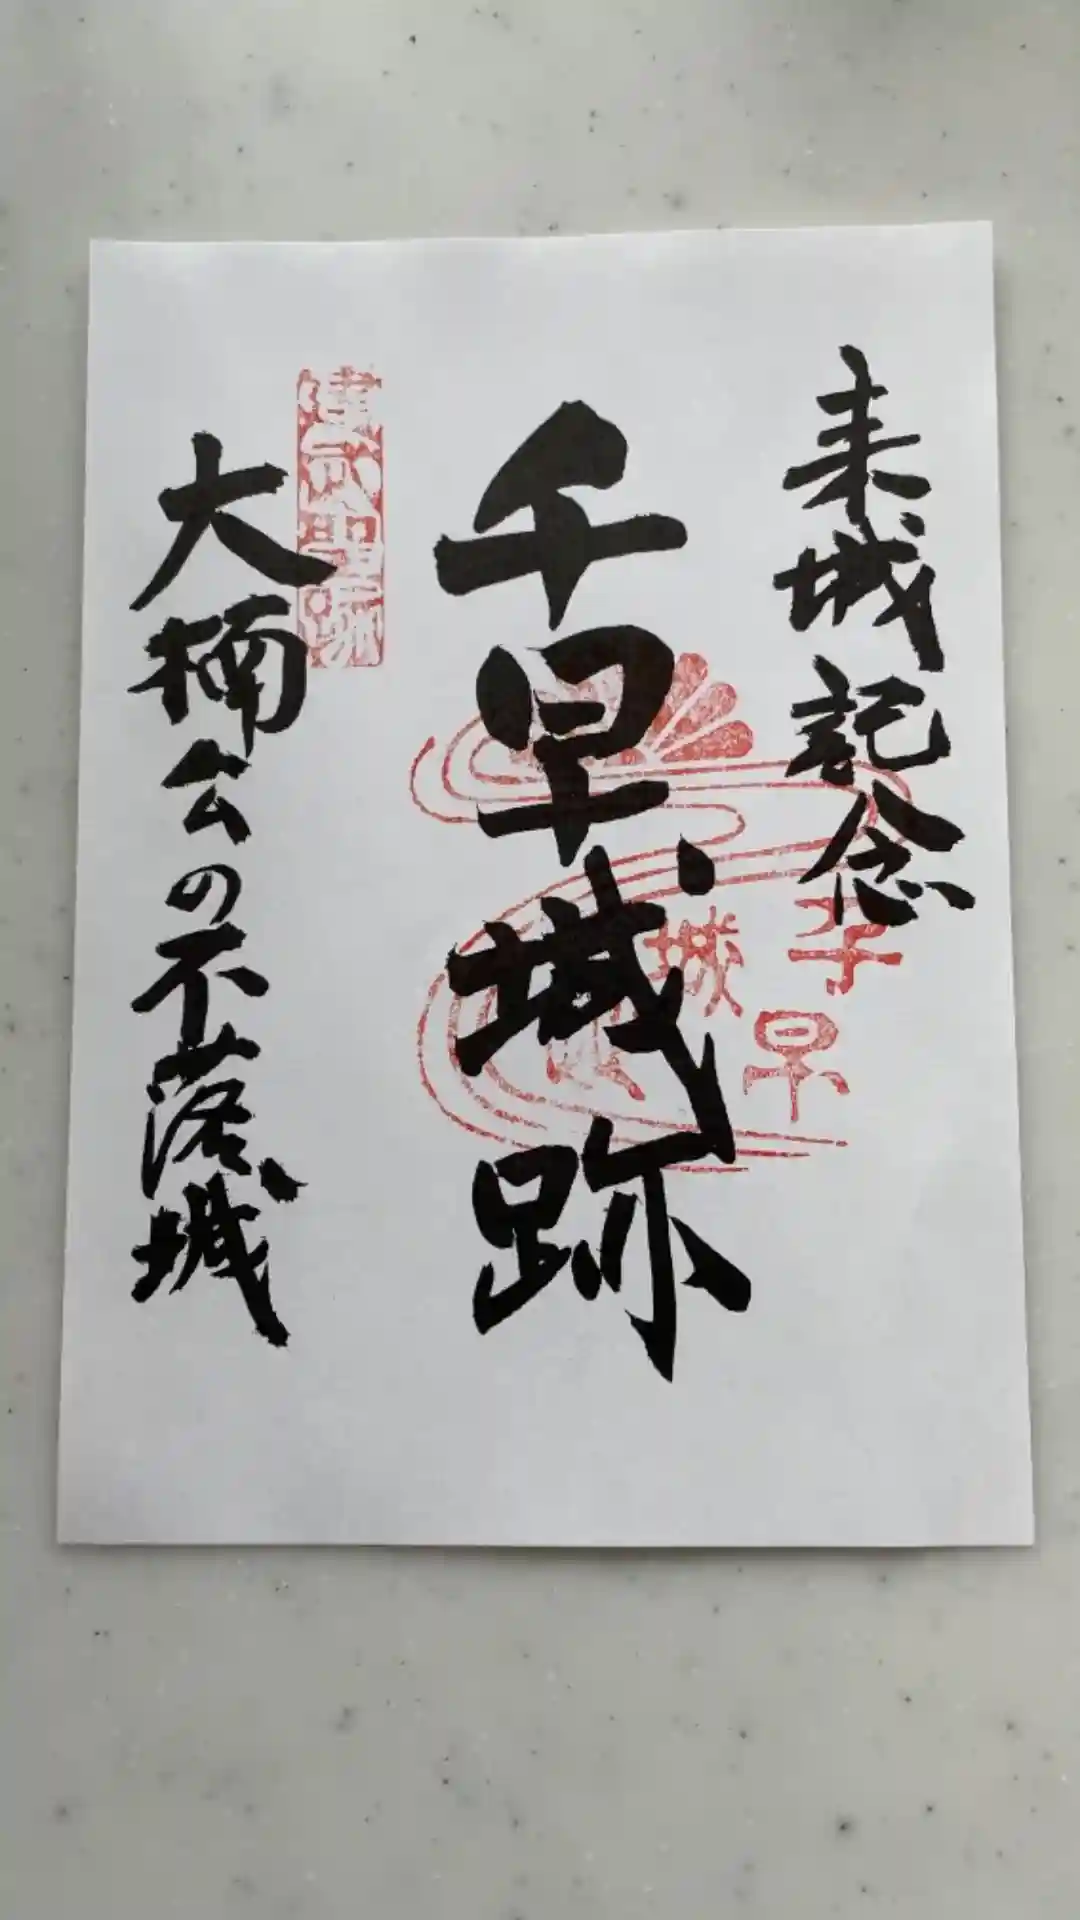 来城記念
千早城跡
大楠公の不落城
千早
城